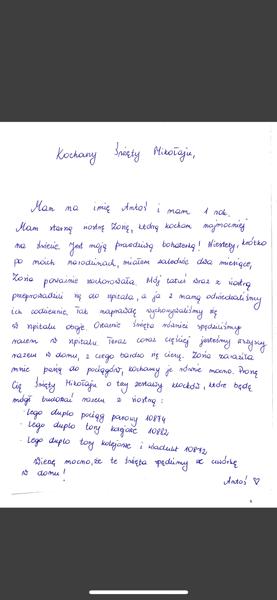 Kochany Święty Mikołaju,
Mam na imię Antoś i mam 1 rok.
Mam starszą siostrę Zosię, którą kocham najmocniej
na świecie. Jest moją prawdziwą bohaterką! Niestety, krótko
po moich narodzinach, miałem zaledwie dwa miesiące,
Zosia poważnie zachorowała. Mój tatuś wraz z siostrą
przeprowadzili się do szpitala, a ja z mamą odwiedzaliśmy
ich codziennie. Tak naprawdę wychowywaliśmy się
w szpitalu oboje. Ostatnie święta również spędziliśmy
razem w szpitalu. Teraz coraz częściej jesteśmy wszyscy
razem w domu, z czego bardzo się cieszę. Zosia zaraziła
mnie pasją do pociągów, kochamy je równie mocno. Proszę
Cię Święty Mikołaju o trzy zestawy klocków, które będę
mógł budować razem z siostrą:
- Lego duplo pociąg parowy 10874
- Lego duplo tory kolejowe 10882
- Lego duplo tory kolejowe i wiadukt 10872
Wierzę mocno, że te święta spędzimy we czwórkę
w domu!
Antoś